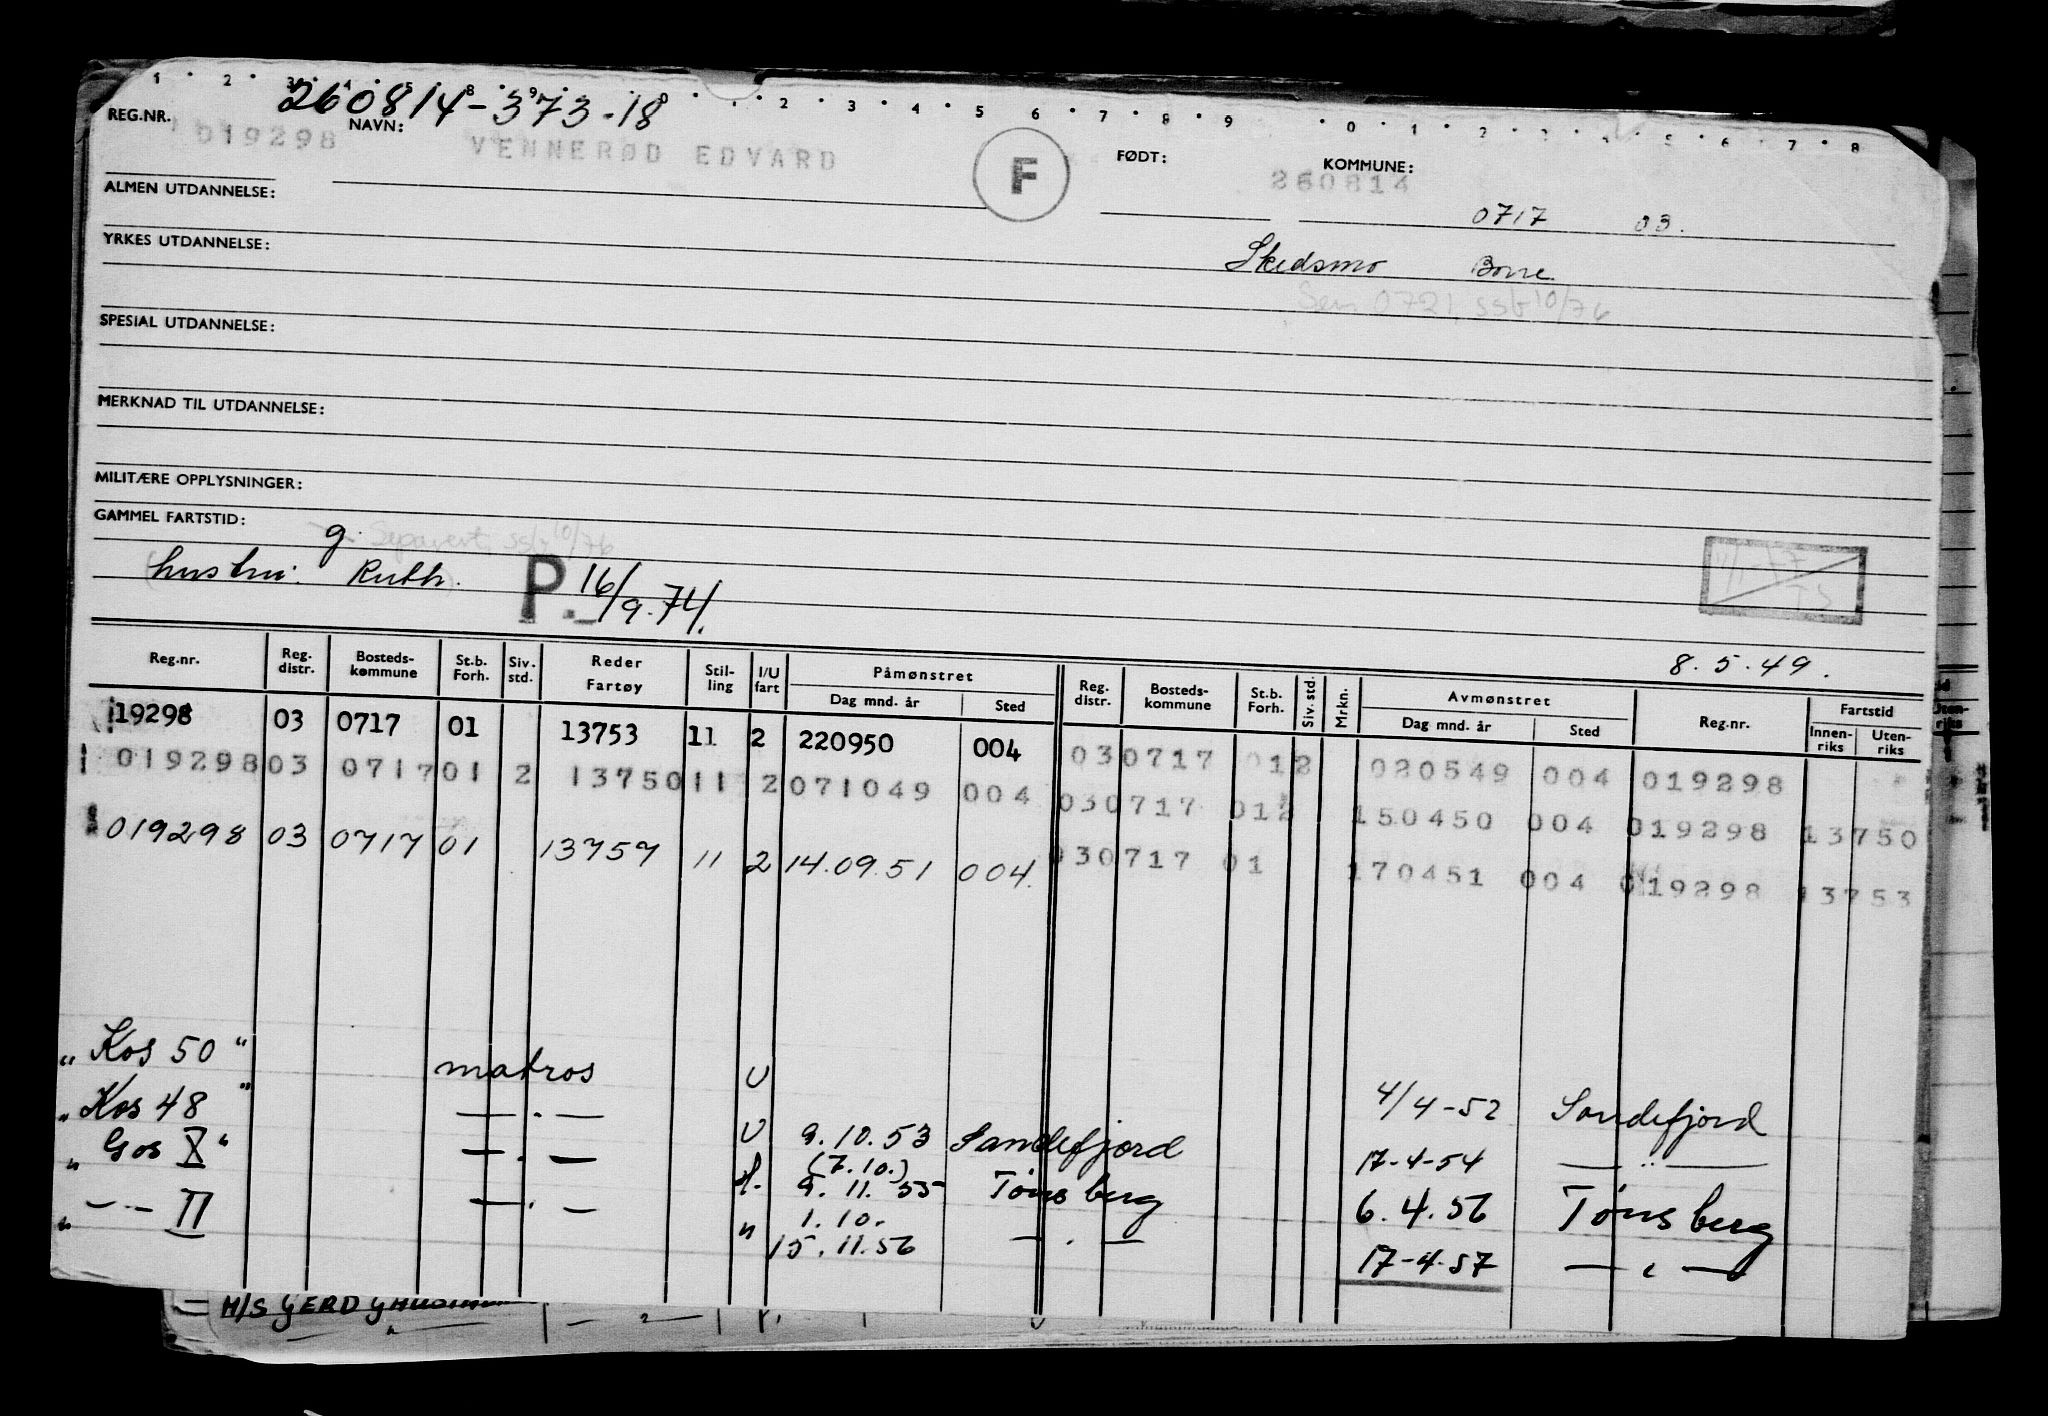 1 · 2 · 3
260814-373-18
1 · 2 · 3 · 4 · 5 · 6 · 7 · 8 · 9
0 · 1 · 2 · 3 · 4 · 5 · 6 · 7 · 8
REG.NR. NAVN: FØDT: KOMMUNE:
019298 VENNERØD EDVARD F 260814
0717 03.
ALMEN UTDANNELSE:
YRKES UTDANNELSE: Skedsmo Borre
Sem 0721, ssb 10/76
SPESIAL UTDANNELSE:
MERKNAD TIL UTDANNELSE:
MILITÆRE OPPLYSNINGER:
GAMMEL FARTSTID: g. Separert, ssb 10/76
(hustru: Ruth.) P. 16/9.74.
8.5.49.
Reg.nr. Reg. distr. Bosteds-kommune St.b. Forh. Siv. std. Reder Fartøy Stil-ling I/U fart Påmønstret Dag mnd. år Sted Reg. distr. Bosteds-kommune St.b. Forh. Siv. std. Mrkn. Avmønstret Dag mnd. år Sted Reg.nr. Fartstid Innen-riks Uten-riks
19298 03 0717 01 13753 11 2 220950 004 03 0717 01 2 080549 004 019298
019298 03 0717 01 2 13750 11 2 071049 004 03 0717 01 2 150450 004 019298 13750
019298 03 0717 01 13757 11 2 14.09.51 004. 03 0717 01 170451 004 019298 13753
„Kos 50“ matros U 4/4-52 Sandefjord
„Kos 48“ —·— U 9.10.53 Sandefjord 17-4-54 —"—
(7.10.)
„Gos X“ —·— 9.11.55 Tønsberg 6.4.56 Tønsberg
1.10.
„—·— II —·— " 15.11.56 —·— 17-4-57 —"—
M/S GERD